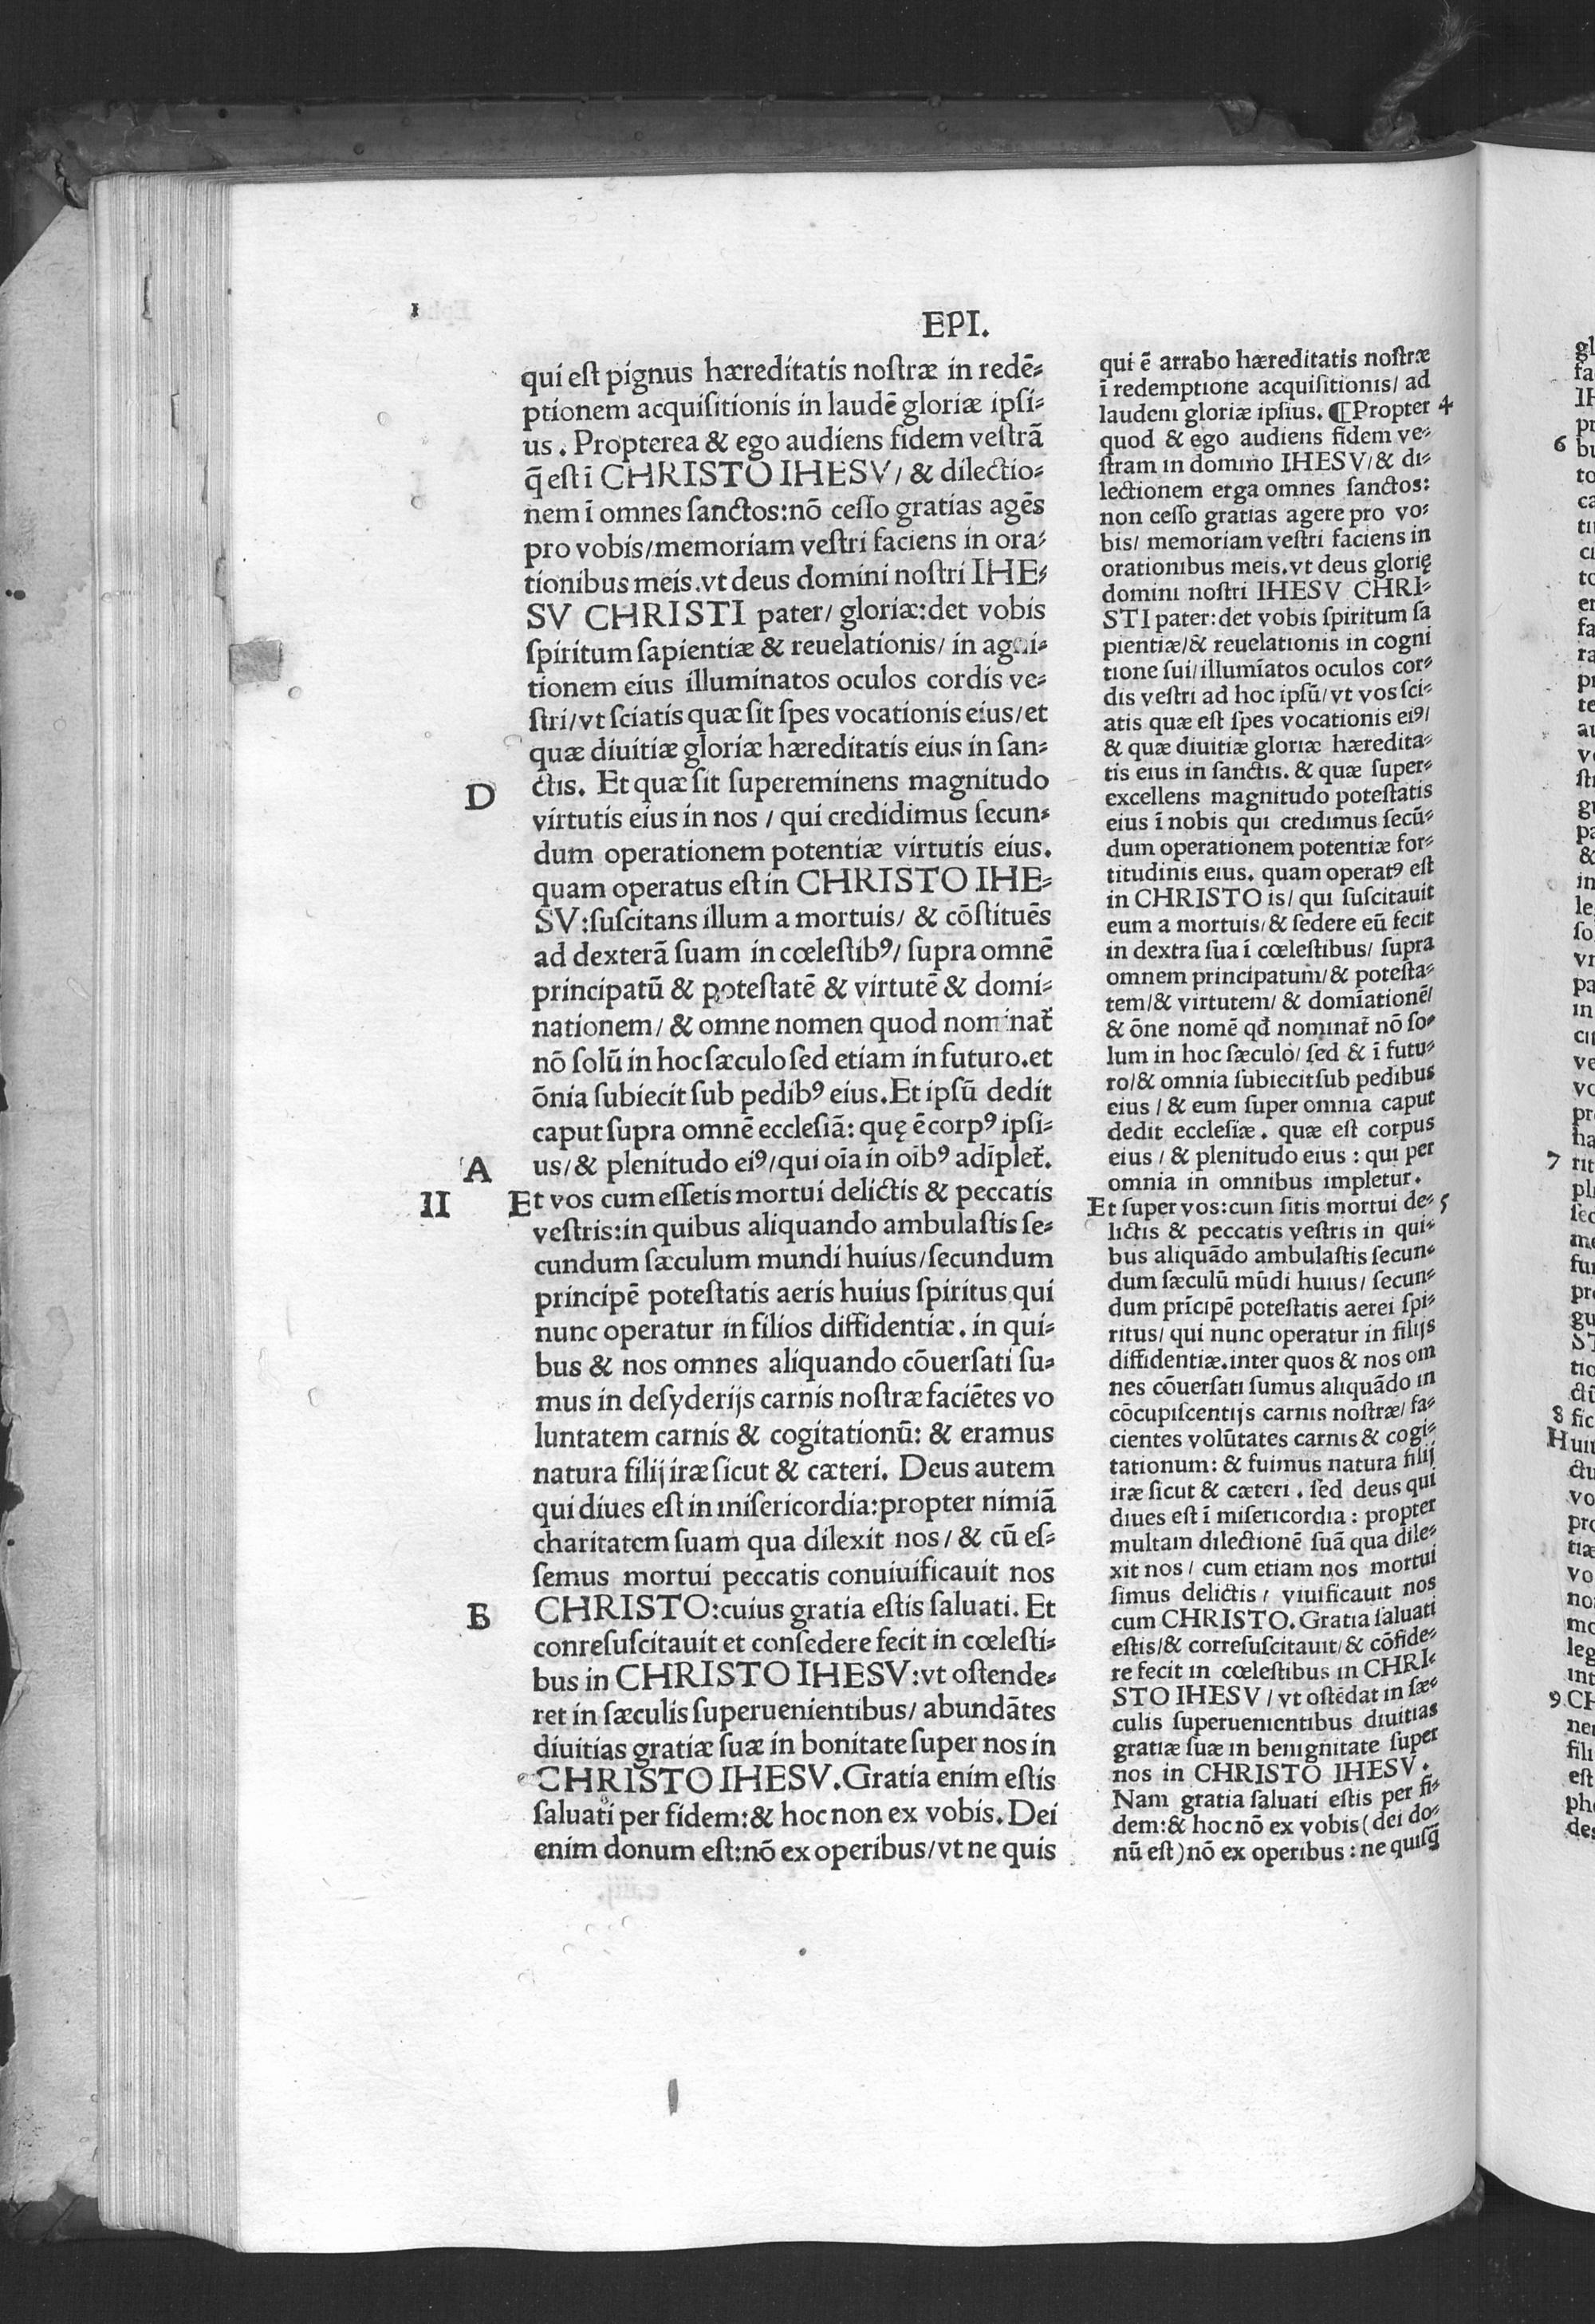 EPI.
qui eſt pignus hæreditatis noſtræ in redē⸗
ptionem acquiſitionis in laudē gloriæ ipſi⸗
us. Propterea & ego audiens fidem veſtrã
q̃ eſt ī CHRISTO IHESV/ & dilectio⸗
nem ī omnes ſanctos:nō ceſſo gratias agēs
pro vobis/memoriam veſtri faciens in ora⸗
tionibus meis.vt deus domini noſtri IHE⸗
SV CHRISTI pater/ gloriæ:det vobis
ſpiritum ſapientiæ & reuelationis/ in agni⸗
tionem eius illuminatos oculos cordis ve⸗
ſtri/vt ſciatis quæ ſit ſpes vocationis eius/et
quæ diuitiæ gloriæ hæreditatis eius in ſan⸗
D
ctis. Et quæ ſit ſupereminens magnitudo
virtutis eius in nos / qui credidimus ſecun⸗
dum operationem potentiæ virtutis eius.
quam operatus eſt in CHRISTO IHE⸗
SV:ſuſcitans illum a mortuis/ & cōſtituēs
ad dexterã ſuam in cœleſtibꝰ/ ſupra omnē
principatū & poteſtatē & virtutē & domi⸗
nationem/ & omne nomen quod nominat᷑
nō ſolū in hoc ſæculo ſed etiam in futuro.et
ōnia ſubiecit ſub pedibꝰ eius.Et ipſū dedit
caput ſupra omnē eccleſiã: quę ē corpꝰ ipſi⸗
A
us/& plenitudo eiꝰ/qui oīa in oībꝰ adīplet᷑.
II
Et vos cum eſſetis mortui delictis & peccatis
veſtris:in quibus aliquando ambulaſtis ſe⸗
cundum ſæculum mundi huius/ſecundum
principē poteſtatis aeris huius ſpiritus qui
nunc operatur in filios diffidentiæ. in qui⸗
bus & nos omnes aliquando cōuerſati fu⸗
mus in deſyderijs carnis noſtræ faciētes vo
luntatem carnis & cogitationū: & eramus
natura filij iræ ſicut & cæteri. Deus autem
qui diues eſt in miſericordia:propter nimiã
charitatem ſuam qua dilexit nos/ & cū eſ⸗
ſemus mortui peccatis conuiuificauit nos
B
CHRISTO:cuius gratia eſtis ſaluati. Et
conreſuſcitauit et conſedere fecit in cœleſti⸗
bus in CHRISTO IHESV:vt oſtende⸗
ret in ſæculis ſuperuenientibus/ abundãtes
diuitias gratiæ ſuæ in bonitate ſuper nos in
CHRISTO IHESV.Gratia enim eſtis
ſaluati per fidem:& hoc non ex vobis. Dei
enim donum eſt:nō ex operibus/vt ne quis
qui ē arrabo hæreditatis noſtræ
ī redemptione acquiſitionis/ ad
laudem gloriæ ipſius. ¶Propter 4
quod & ego audiens fidem ve⸗
ſtram in domino IHESV/& di⸗
lectionem erga omnes ſanctos:
non ceſſo gratias agere pro vo⸗
bis/ memoriam veſtri faciens in
orationibus meis.vt deus glorię
domini noſtri IHESV CHRI⸗
STI pater:det vobis ſpiritum ſa
pientiæ/& reuelationis in cogni
tione ſui/illumīatos oculos cor⸗
dis veſtri ad hoc ipſū/vt vos ſci⸗
atis quæ eſt ſpes vocationis eiꝰ/
& quæ diuitiæ gloriæ hæredita⸗
tis eius in ſanctis. & quæ ſuper⸗
excellens magnitudo poteſtatis
eius ī nobis qui credimus ſecū⸗
dum operationem potentiæ for⸗
titudinis eius. quam operatꝰ eſt
in CHRISTO is/ qui ſuſcitauit
eum a mortuis/& ſedere eū fecit
in dextra ſua ī cœleſtibus/ ſupra
omnem principatum/& poteſta⸗
tem/& virtutem/ & domīationē/
& ōne nomē qđ nominat᷑ nō ſo⸗
lum in hoc ſæculo/ ſed & ī futu⸗
ro/& omnia ſubiecit ſub pedibus
eius / & eum ſuper omnia caput
dedit eccleſiæ. quæ eſt corpus
eius / & plenitudo eius : qui per
omnia in omnibus impletur.
Et ſuper vos:cum ſitis mortui de⸗ 5
lictis & peccatis veſtris in qui⸗
bus aliquãdo ambulaſtis ſecun⸗
dum ſæculū mūdi huius/ ſecun⸗
dum prīcipē poteſtatis aerei ſpi⸗
ritus/ qui nunc operatur in filijs
diffidentiæ.inter quos & nos om
nes cōuerſati ſumus aliquãdo in
cōcupiſcentijs carnis noſtræ/ fa⸗
cientes volūtates carnis & cogi⸗
tationum: & fuimus natura filij
iræ ſicut & cæteri. ſed deus qui
diues eſt ī miſericordia : propter
multam dilectionē ſuã qua dile⸗
xit nos / cum etiam nos mortui
ſimus delictis / viuificauit nos
cum CHRISTO.Gratia ſaluati
eſtis/& correſuſcitauit/& cōſide⸗
re fecit in cœleſtibus in CHRI⸗
STO IHESV / vt oſtēdat in ſæ⸗
culis ſuperuenientibus diuitias
gratiæ ſuæ in benignitate ſuper
nos in CHRISTO IHESV.
Nam gratia ſaluati eſtis per fi⸗
dem:& hoc nō ex vobis(dei do⸗
nū eſt)nō ex operibus : ne quiſq̃
6
7
8
9